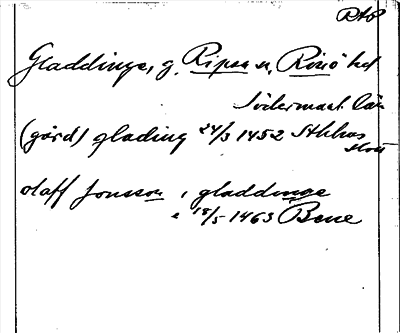 RAP
Gladdinge, g. Ripsa sn, Rönö hd
Södermanl. län
(gård) glading 24/3 1452 Sthlms
slott
olaff jonsson i gladdinge
15/5 1463 Bene